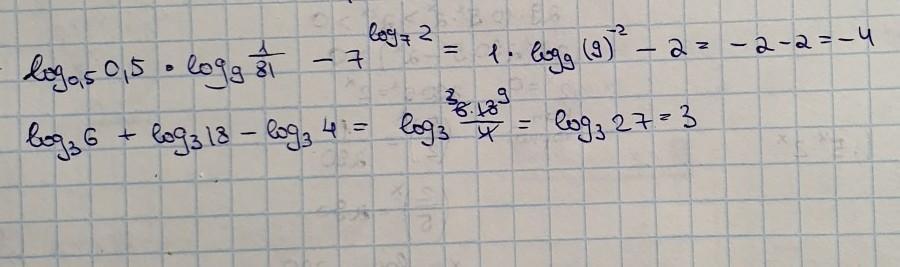 log₀,₅ 0,5 · log₉ 1/81 − 7^log₇ 2 = 1 · log₉ (9)⁻² − 2 = −2−2 = −4
log₃6 + log₃18 − log₃4 = log₃ ³6·18⁹/4 = log₃ 27 = 3